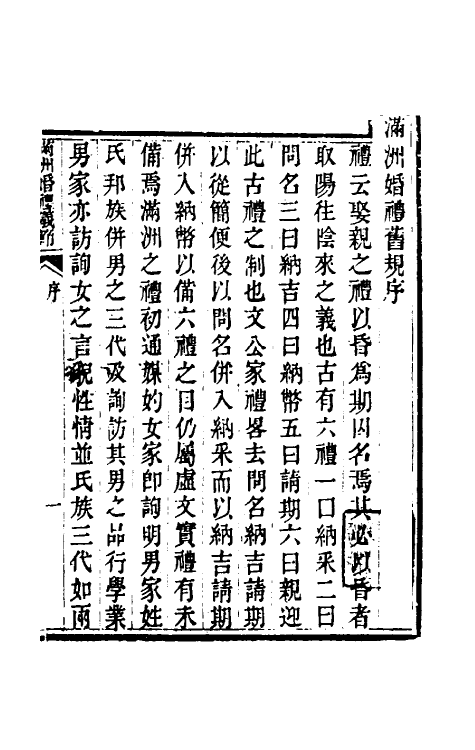 滿洲婚禮舊規序
禮云娶親之禮以昏爲期因名焉其必以昏者
取陽往陰來之義也古有六禮一曰納采二曰
問名三曰納吉四曰納幣五曰請期六曰親迎
此古禮之制也文公家禮畧去問名納吉請期
以從簡便後以問名併入納采而以納吉請期
併入納幣以備六禮之目仍屬虛文實禮有未
備焉滿洲之禮初通媒妁女家即詢明男家姓
氏邦族併男之三代及詢訪其男之品行學業
男家亦訪詢女之言貌性情並氏族三代如兩
滿州婚禮儀節
序
一